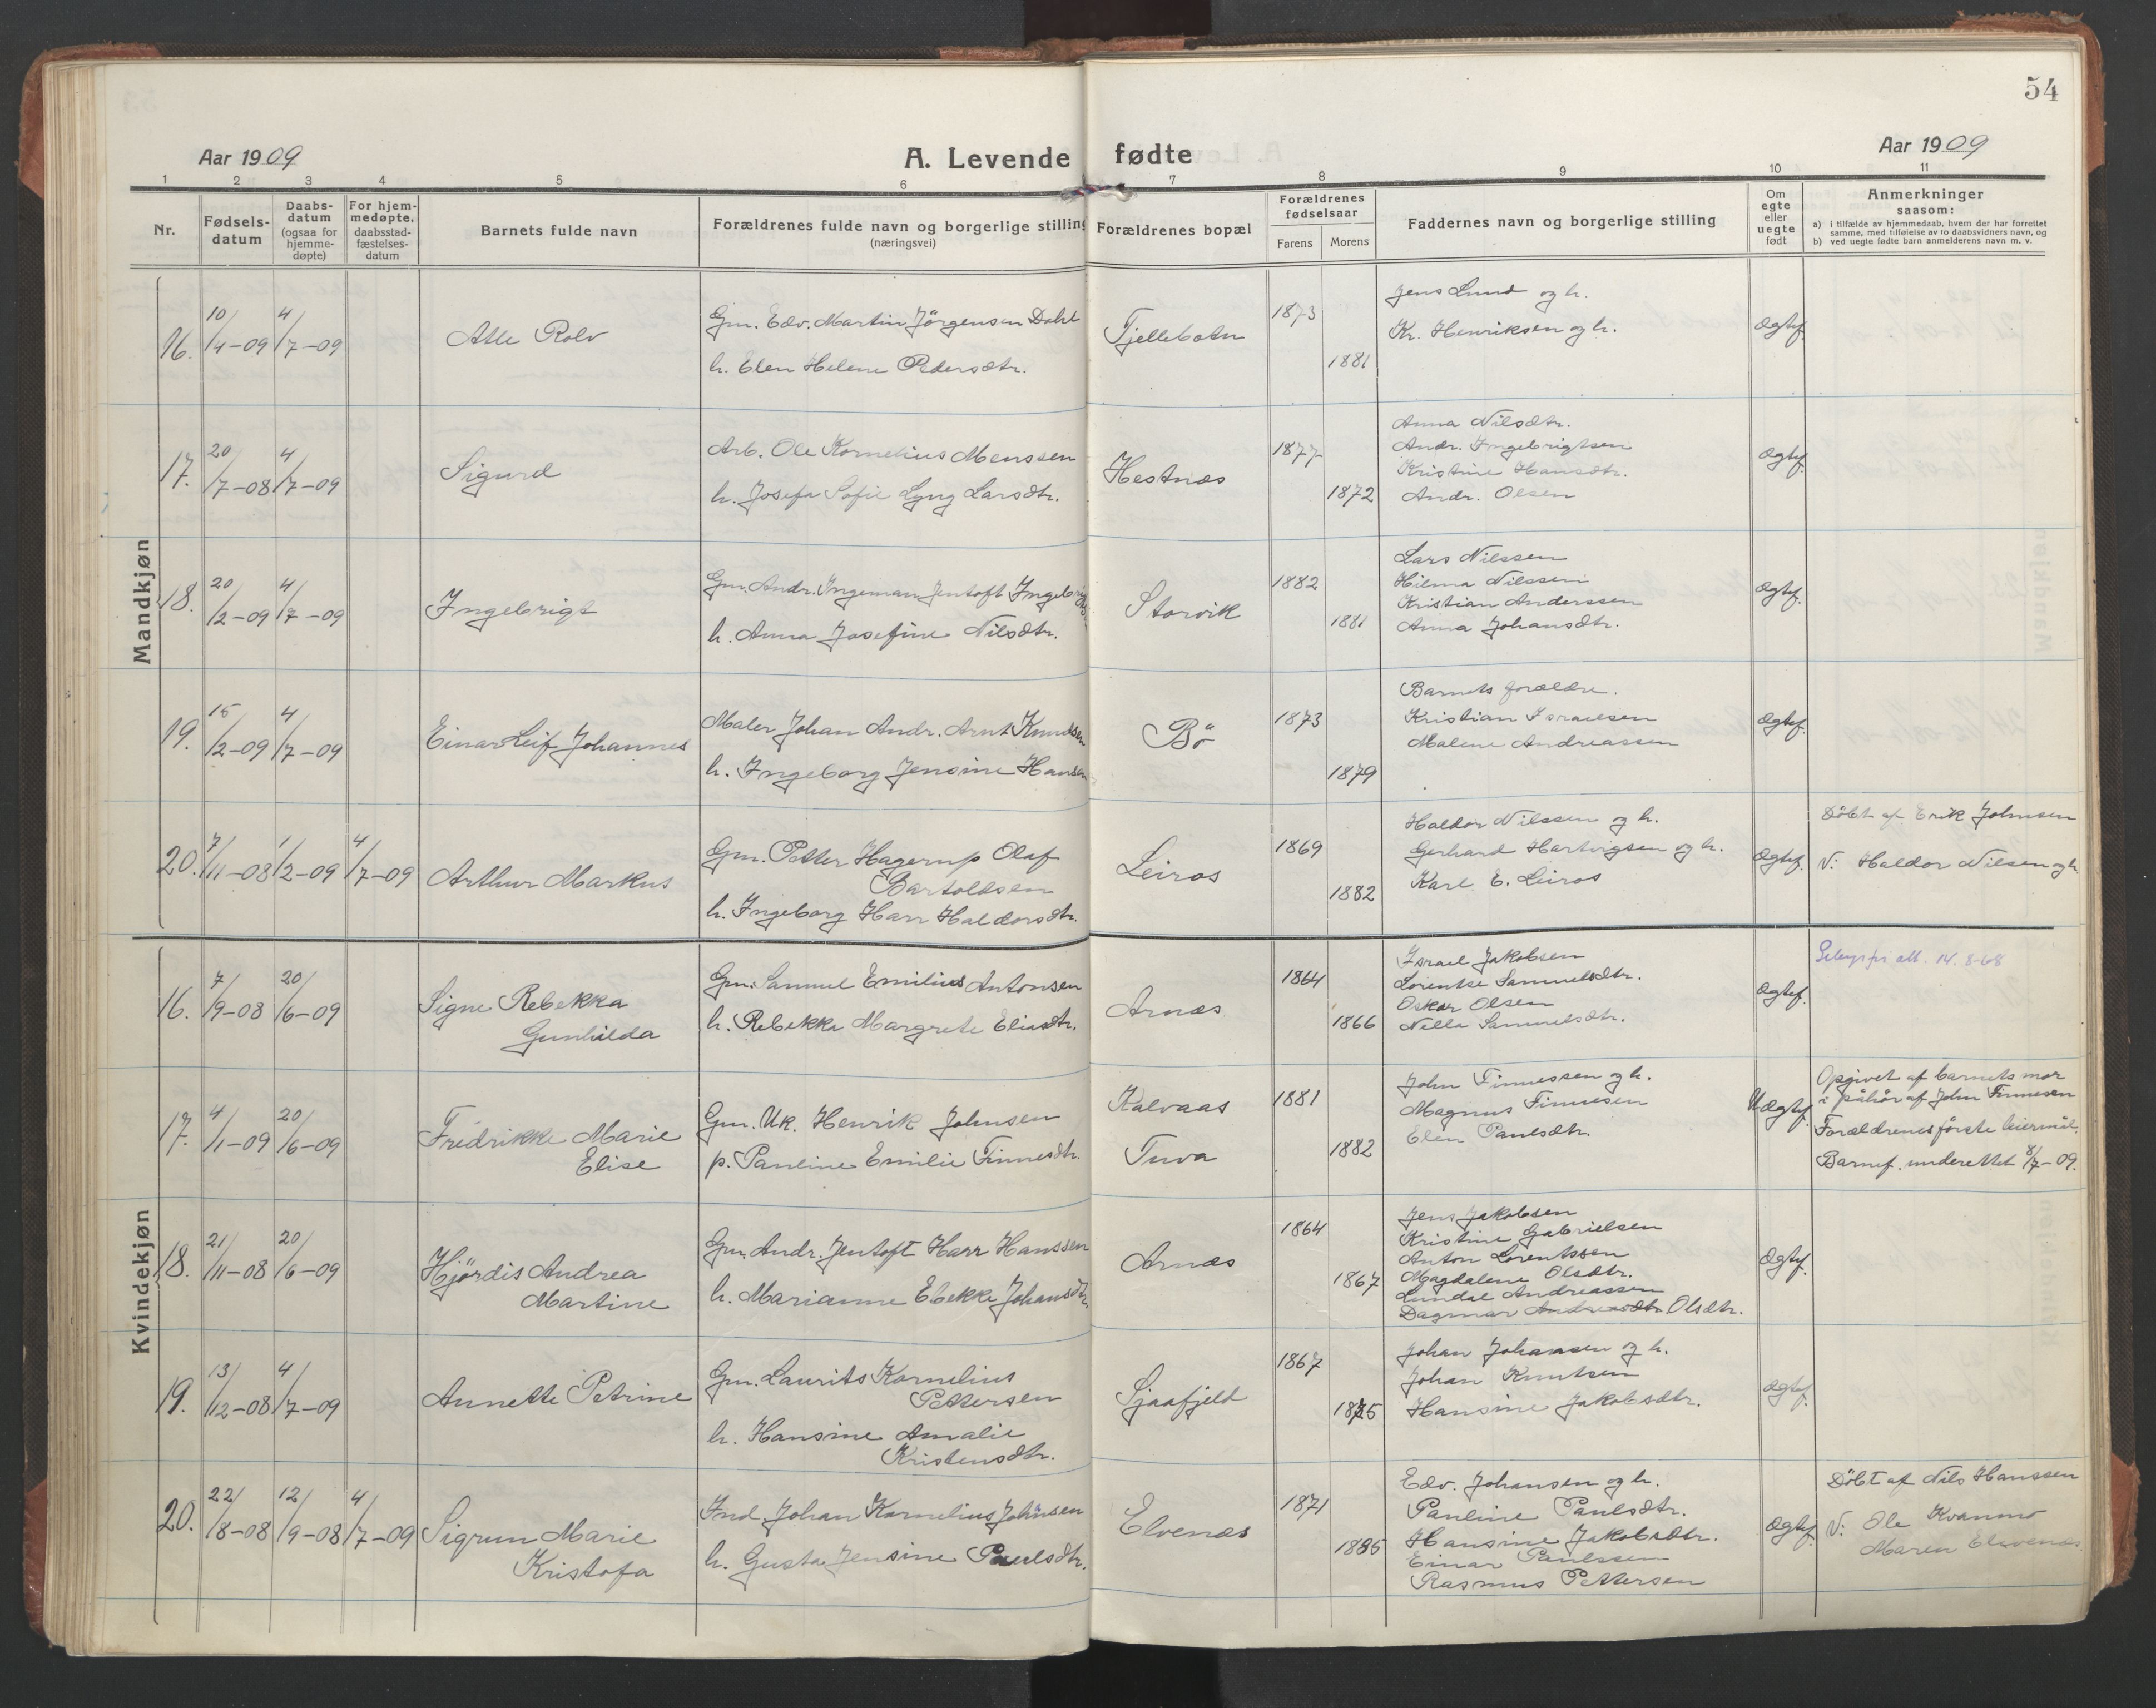 54
Aar 1909
A. Levende fødte
Aar 1909
1 2 3 4 5 6 7 8 9 10 11
Nr.
Fødsels-
datum
Daabs-
datum
(ogsaa for
hjemme-
døpte)
For hjem-
medøpte,
daabsstad-
fæstelses-
datum
Barnets fulde navn
Forældrenes fulde navn og borgerlige stilling
(næringsvei)
Forældrenes bopæl
Forældrenes
fødselsaar
Farens Morens
Faddernes navn og borgerlige stilling
Om
egte
eller
uegte
født
Anmerkninger
saasom:
a) i tilfælde av hjemmedaab, hvem der har forrettet
samme, med tilføielse av to daabsvidners navn, og
b) ved uegte fødte barn anmelderens navn m. v.
Mandkjøn
16.
10/4-09
4/7-09
Atle Rolv
Gm. Edv. Martin Jörgensen Dahl
h. Elen Helene Pedersdtr.
Fjellebotn
1873
1881
Jens Lund og h.
Kr. Henriksen og h.
Ægtef.
17.
20/7-08
4/7-09
Sigurd
Arb. Ole Kornelius Monssen
h. Josefa Sofie Lyng Larsdtr.
Hestnæs
1877
1872
Anna Nilsdtr.
Andr. Ingebrigtsen
Kristine Hansdtr.
Andr. Olsen
Ægtef.
18.
20/2-09
4/7-09
Ingebrigt
Gm. Andr. Ingeman Jentoft Ingebrigtsen
h. Anna Josefine Nilsdtr.
Storvik
1882
1881
Lars Nilssen
Hilma Nilssen
Kristian Anderssen
Anna Johansdtr.
Ægtef.
19.
15/2-09
4/7-09
Einar Leif Johannes
Maler Johan Andr. Arnt Knudsen
h. Ingeborg Jensine Hansen
Bö
1873
1879
Barnets forældre.
Kristian Israelsen
Malene Andreassen
Ægtef.
20.
7/11-08
1/2-09
4/7-09
Arthur Markus
Gm. Petter Hagerup Olaf
Bartoldsen
h. Ingeborg Harr Haldorsdtr.
Leiros
1869
1882
Haldor Nilssen og h.
Gerhard Hartvigsen og h.
Karl E. Leiros
Ægtef.
Döbt af Erik Johnsen
V: Haldor Nilsen og h.
Kvindekjøn
16.
7/9-08
20/6-09
Signe Rebekka
Gunhilda
Gm. Samuel Emilius Antonsen
h. Rebekka Margrete Eliasdtr.
Arnæs
1864
1866
Israel Jakobsen
Lorentse Samuelsdtr.
Oskar Olsen
Nella Samuelsdtr.
Ægtef.
att. 14. 8-68
17.
4/1-09
20/6-09
Fredrikke Marie
Elise
Gm. Uk. Henrik Johnsen
p. Pauline Emilie Finnesdtr.
Kalvaas
Tuva
1881
1882
John Finnessen og h.
Magnus Finnesen
Elen Paulsdtr.
Uægtef.
Opgivet af barnets mor
i påhör af John Finnesen
Forældrenes förste leiermål.
Barnef. underettet 8/7-09.
18.
21/11-08
20/6-09
Hjördis Andrea
Martine
Gm. Andr. Jentoft Harr Hanssen
h. Marianne Ebekke Johansdtr.
Arnæs
1864
1867
Jens Jakobsen
Kristine Gabrielsen
Anton Lorentssen
Magdalene Olsdtr.
Lundal Andreassen
Dagmar Andreasdtr. Olsdtr.
Ægtef.
19.
13/12-08
4/7-09
Annette Petrine
Gm. Laurits Kornelius
Pettersen
h. Hansine Amalie
Kristensdtr.
Sjaafjeld
1867
1875
Johan Johansen og h.
Johan Knutsen
Hansine Jakobsdtr.
Ægtef.
20.
22/8-08
12/9-08
4/7-09
Sigrun Marie
Kristofa
Ind. Johan Kornelius Johnsen
h. Gusta Jensine Paulsdtr.
Elvenæs
1871
1885
Edv. Johansen og h.
Pauline Paulsdtr.
Hansine Jakobsdtr.
Einar Paulssen
Rasmus Pettersen
Ægtef.
Döbt af Nils Hanssen
V: Ole Kvanmo
Maren Elvenæs.